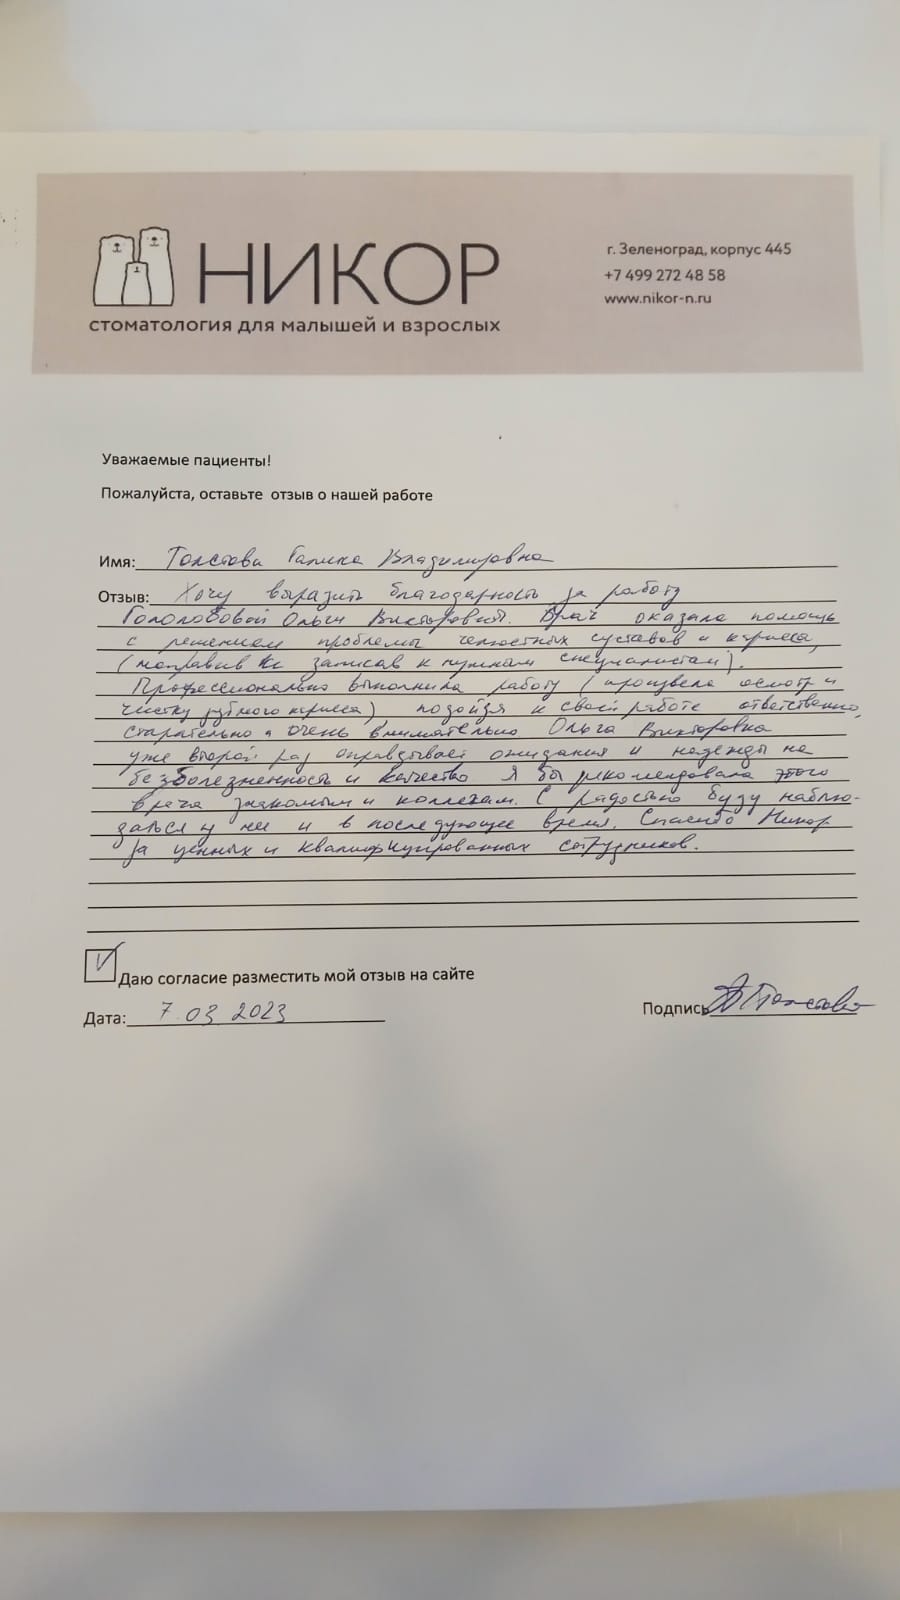 НИКОР
стоматология для малышей и взрослых
г. Зеленоград, корпус 445
+7 499 272 48 58
www.nikor-n.ru
Уважаемые пациенты!
Пожалуйста, оставьте отзыв о нашей работе
Имя: Толстова Галина Владимировна
Отзыв: Хочу выразить благодарность за работу
Гололобовой Ольги Викторовны. Врач оказала помощь
с решением проблемы челюстных суставов и кариеса,
(направив и записав к нужным специалистам).
Профессионально выполнила работу (произвела осмотр и
чистку зубного кариеса) подойдя к своей работе ответственно,
старательно и очень внимательно Ольга Викторовна
уже второй раз оправдывает ожидания и надежды на
безболезненность и качество Я бы рекомендовала этого
врача знакомым и коллегам. С радостью буду наблю-
даться у нее и в последующее время. Спасибо Никор
за ценных и квалифицированных сотрудников.
Даю согласие разместить мой отзыв на сайте
Дата: 7.03 2023
Подпись Толстова